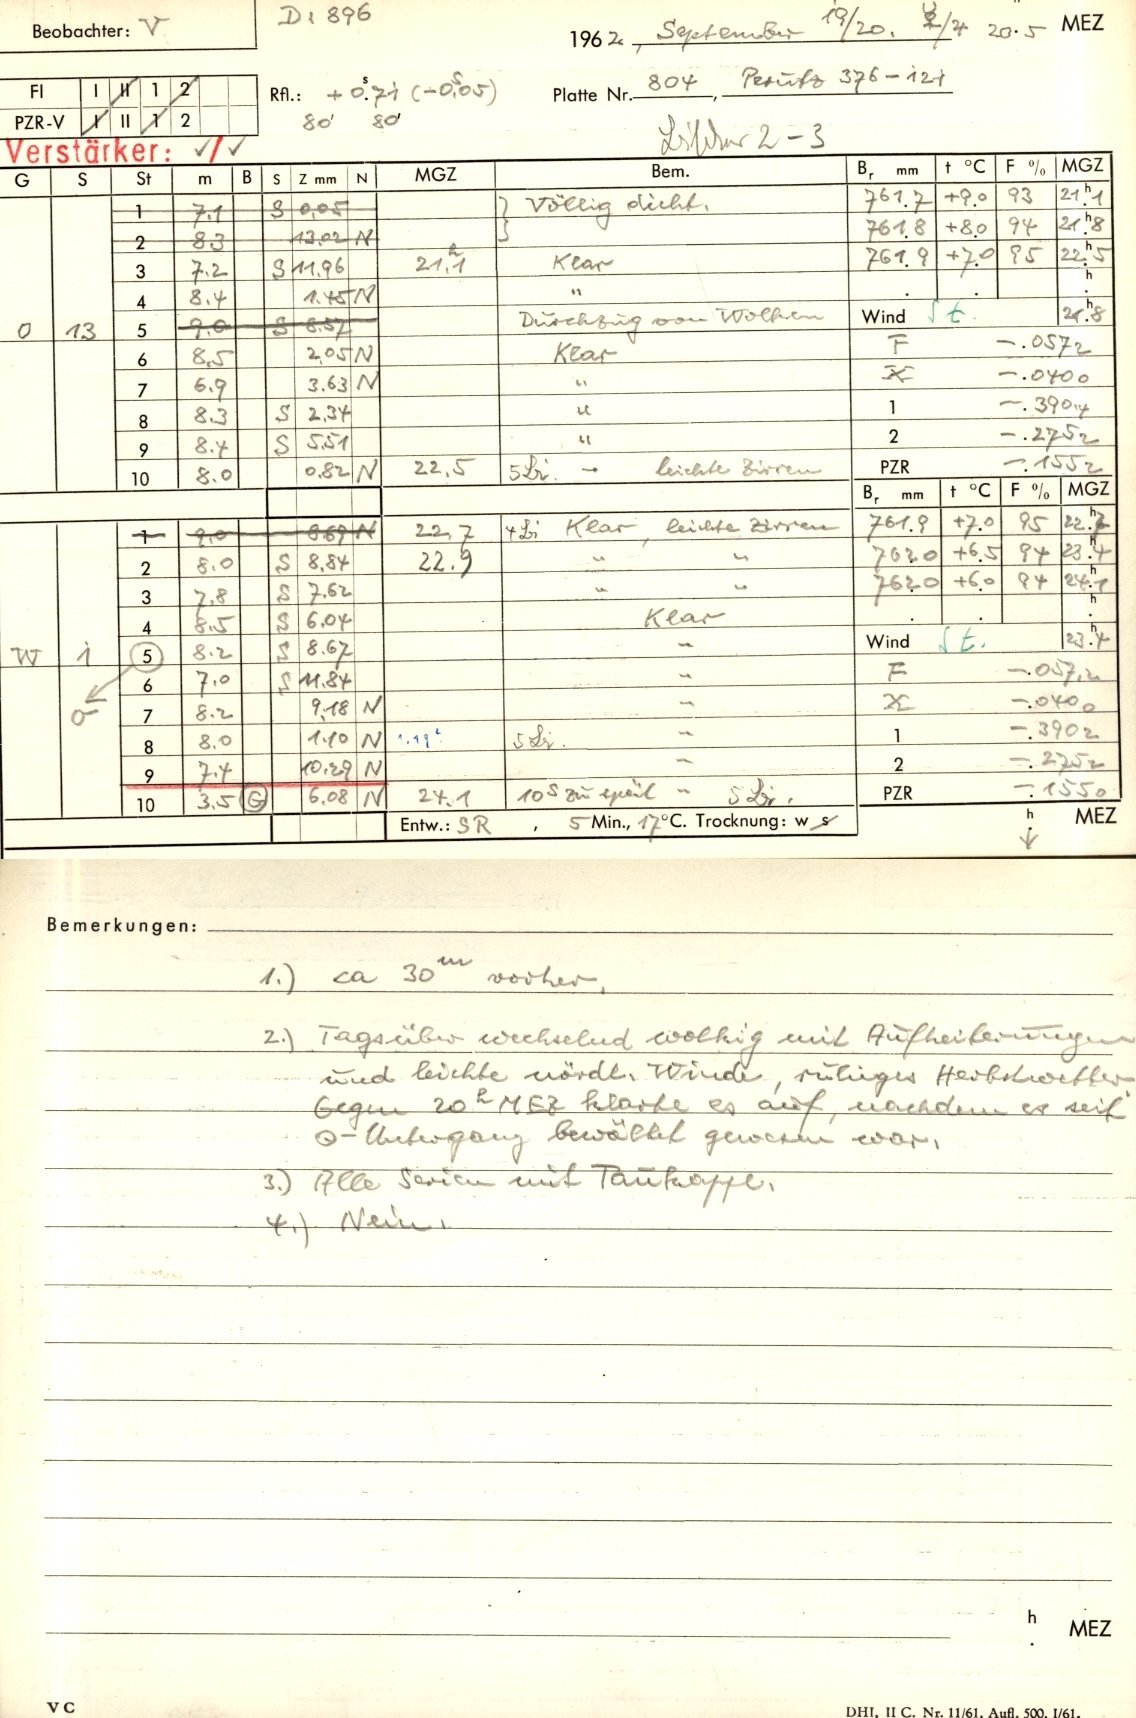 Beobachter: V
D1 896
1962, September 19/20. 20.5 MEZ
FI I II 1 2
PZR-V I II 1 2
Rfl.: +0.71 (-0.05)
80' 80'
Platte Nr. 804, Perutz 376-121
2-3
Verstärker: ✓/✓
G S St m B S Z mm N MGZ Bem. Br mm t °C F % MGZ
1 7.1 S 0.05 Völlig dicht. 761.7 +9.0 93 21h.1
2 8.3 13.02 N 761.8 +8.0 94 21h.8
3 7.2 S 11.96 21.1h Klar 761.9 +7.0 95 22h.5
4 8.4 1.45 N " . . h.
O 13 5 9.0 S 8.57 Durchzug von Wolken Wind St. 21h.8
6 8.5 2.05 N Klar F -.0572
7 6.9 3.63 N " X -.0400
8 8.3 S 2.34 " 1 -.3904
9 8.4 S 5.51 " 2 -.2752
10 8.0 0.82 N 22.5 leichte Zirren PZR -.1552
Br mm t °C F % MGZ
1 9.0 8.69 N 22.7 Klar, leichte Zirren 761.9 +7.0 95 22h.7
2 8.0 S 8.84 22.9 " " 762.0 +6.5 94 23h.4
3 7.8 S 7.62 " " 762.0 +6.0 94 24h.1
4 8.5 S 6.04 Klar . . h.
W 1 5 8.2 S 8.67 " Wind St. 23h.4
6 7.0 S 11.84 " F -.0572
σ 7 8.2 9.18 N " X -.0400
8 8.0 1.10 N " 1 -.3902
9 7.4 10.29 N " 2 -.2752
10 3.5 G 6.08 N 24.1 10s zu spät " PZR -.1550
Entw.: SR, 5 Min., 17°C. Trocknung: w s h. MEZ
Bemerkungen:
1.) ca 30m vorher.
2.) Tagsüber wechselnd wolkig mit Aufheiterungen
und leichte nördl. Winde, ruhiges Herbstwetter.
Gegen 20h MEZ klarte es auf, nachdem es seit
⊙-Untergang bewölkt gewesen war.
3.) Alle Serien mit Taukappe.
4.) Nein.
h. MEZ
V C
DHI, II C. Nr. 11/61. Aufl. 500. I/61.